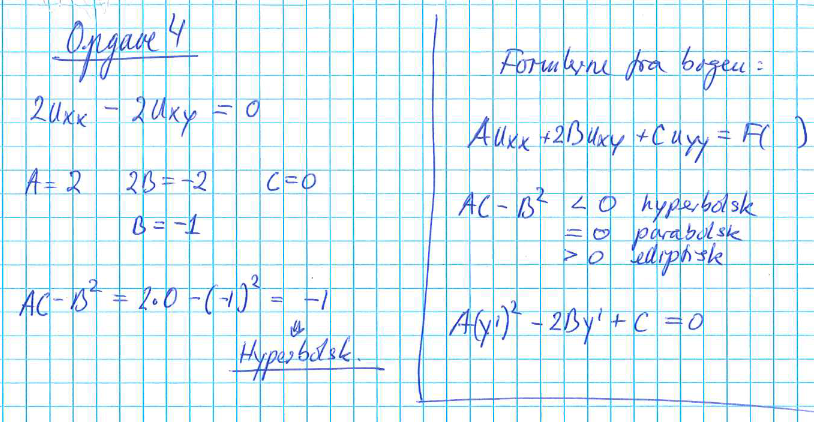 Opgave 4
2Uxx - 2Uxy = 0
A = 2 2B = -2 C = 0
B = -1
AC - B² = 2·0 - (-1)² = -1
⇓
Hyperbolsk.
Formlerne fra bogen:
AUxx + 2BUxy + CUyy = F( )
AC - B² < 0 hyperbolsk
= 0 parabolsk
> 0 elliptisk
A(y')² - 2By' + C = 0